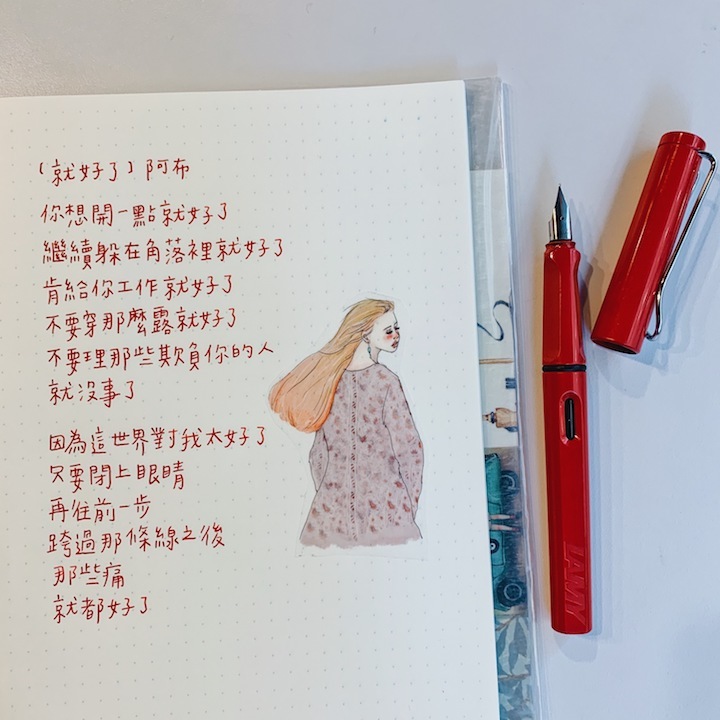 〔就好了〕阿布
你想開一點就好了
繼續躲在角落裡就好了
肯給你工作就好了
不要穿那麼露就好了
不要理那些欺負你的人
就沒事了
因為這世界對我太好了
只要閉上眼睛
再往前一步
跨過那條線之後
那些痛
就都好了
LAMY